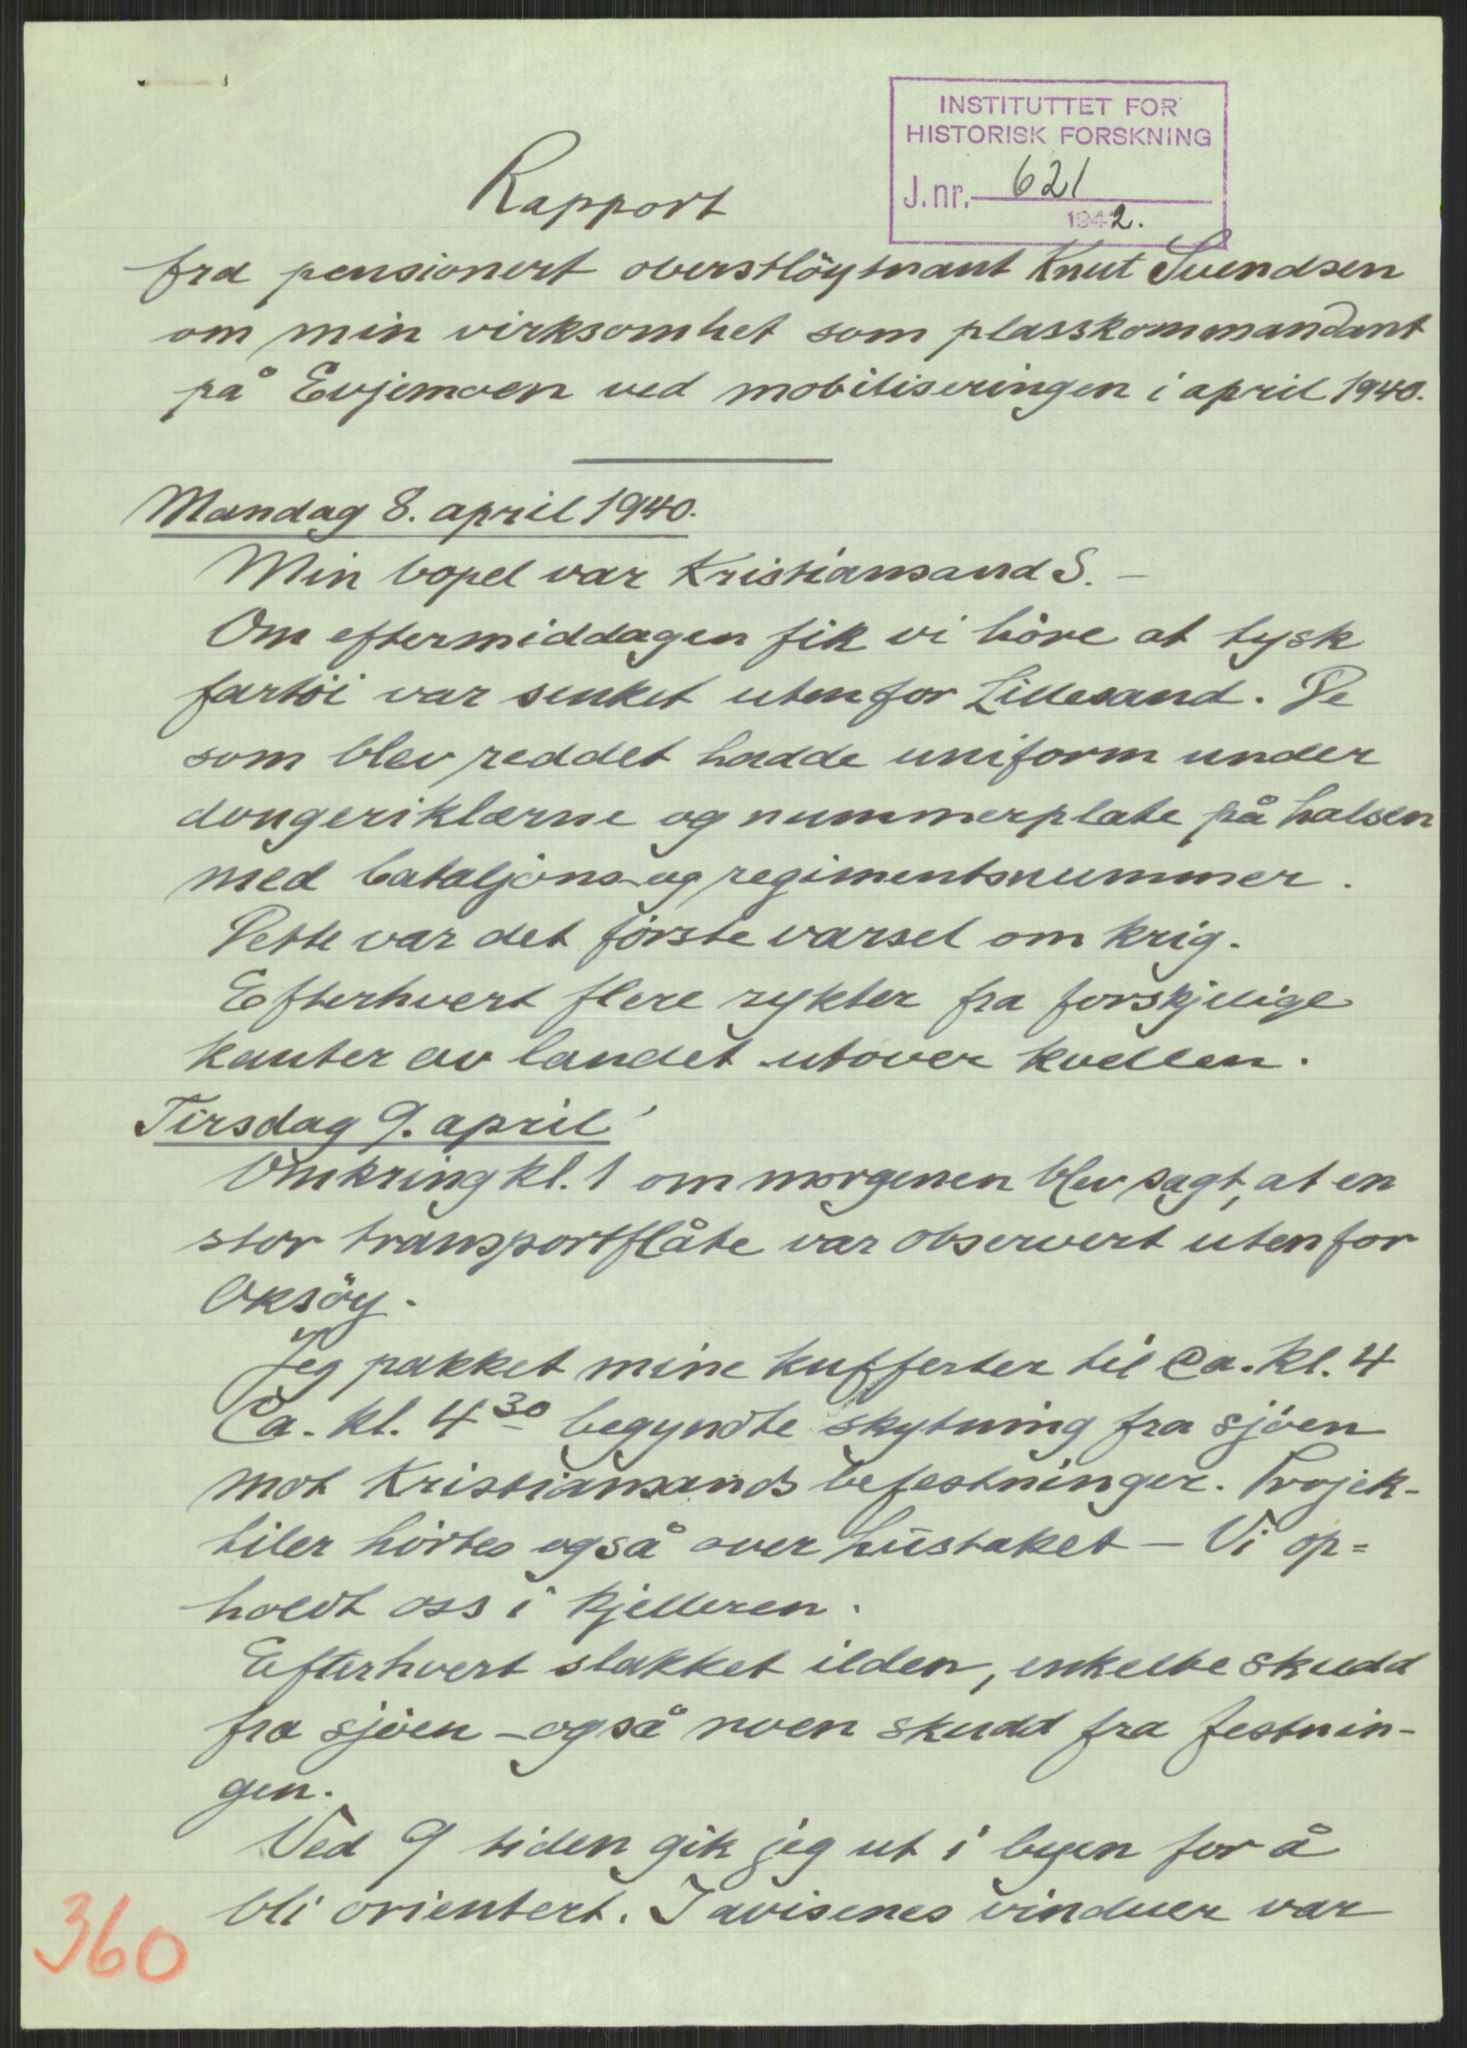 INSTITUTTET FOR
HISTORISK FORSKNING
J. nr. 621
1942.
Rapport
fra pensionert oberstlöytnant Knut Svendsen
om min virksomhet som plasskommandant
på Evjemoen ved mobiliseringen i april 1940.
Mandag 8. april 1940.
Min bopel var Kristiansand S. –
Om eftermiddagen fik vi höre at tysk
fartöi var senket utenfor Lillesand. De
som blev reddet hadde uniform under
dongeriklærne og nummerplate på halsen
med bataljons og regimentsnummer.
Dette var det förste varsel om krig.
Efterhvert flere rykter fra forskjellige
kanter av landet utover kvellen.
Tirsdag 9. april
Omkring kl. 1 om morgenen blev sagt, at en
stor transportflåte var observert utenfor
Oksöy.
Jeg pakket mine kufferter til ca. kl. 4
Ca. kl. 4 30 begyndte skytning fra sjöen
mot Kristiansands befestninger. Projek-
tiler hörtes også over hustaket – Vi op=
holdt oss i kjelleren.
Efterhvert slakket ilden, enkelte skudd
fra sjöen – også noen skudd fra festnin-
gen.
Ved 9 tiden gik jeg ut i byen for å
bli orientert. I avisenes vinduer var
360